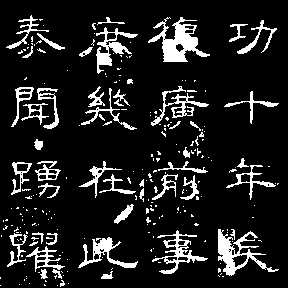 功十年俟
復廣前事
庶幾在此
泰聞踴躍